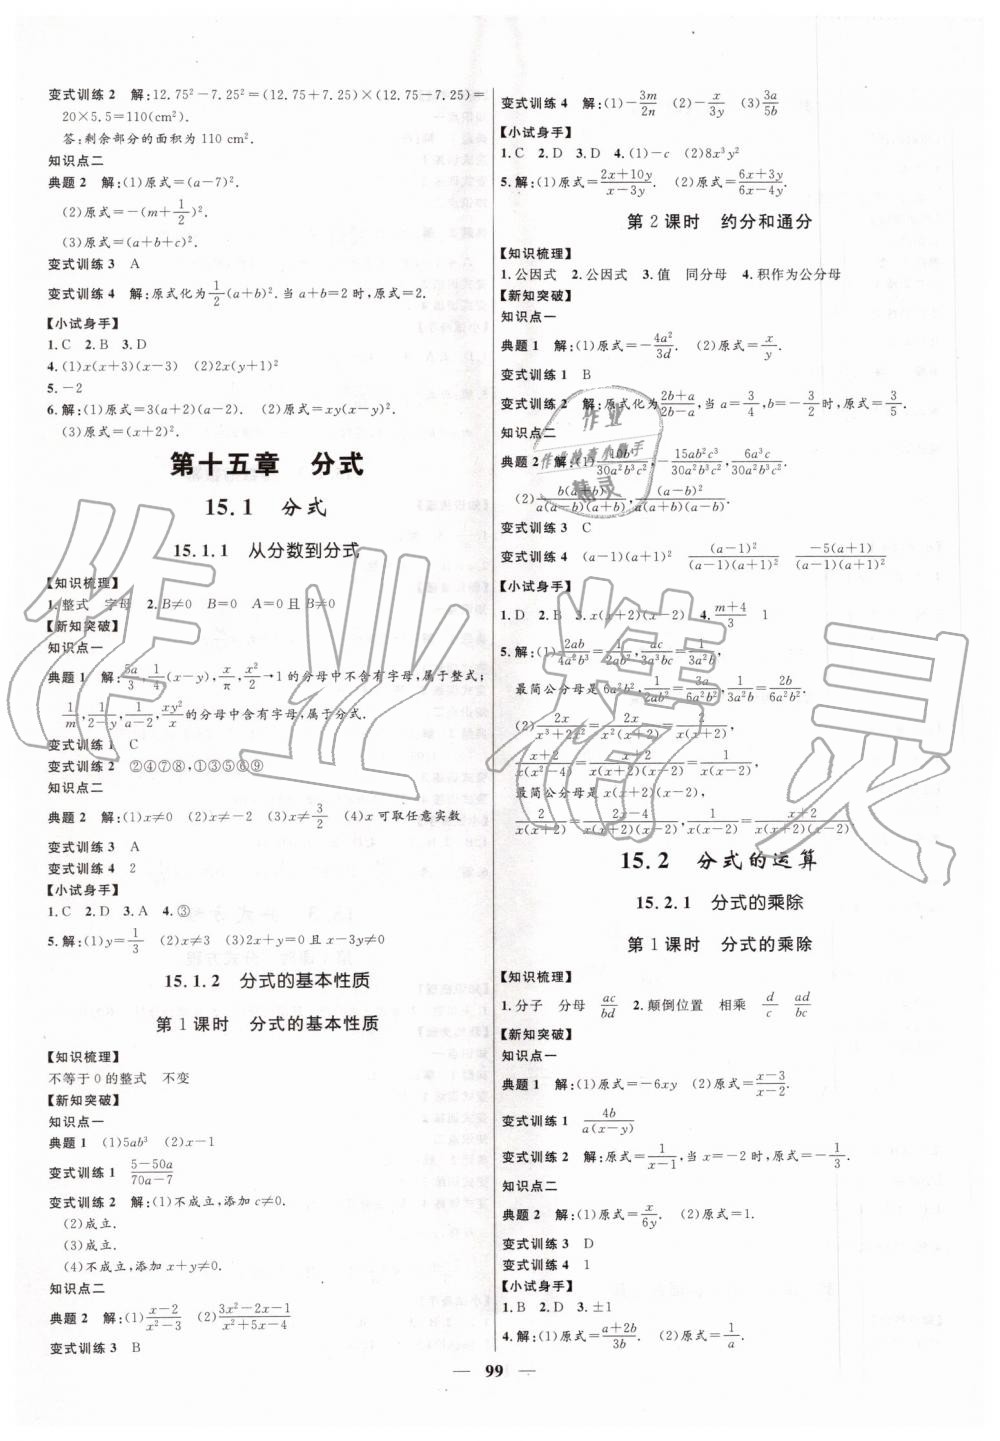 变式训练2 解:12.75²-7.25²=(12.75+7.25)×(12.75-7.25)=
20×5.5=110(cm²)
答:剩余部分的面积为110 cm².
知识点二
典题2 解:(1)原式=(a-7)².
(2)原式=-(m+1/2)².
(3)原式=(a+b+c)².
变式训练3 A
变式训练4 解:原式化为1/2(a+b)².当a+b=2时,原式=2.
【小试身手】
1.C 2.B 3.D
4.(1)x(x+3)(x-3) (2)2x(y+1)²
5.-2
6.解:(1)原式=3(a+2)(a-2). (2)原式=xy(x-y)².
(3)原式=(x+2)².
第十五章 分式
15.1 分式
15.1.1 从分数到分式
【知识梳理】
1.整式 字母 2.B≠0 B=0 A=0且B≠0
【新知突破】
知识点一
典题1 解:5a/3,1/4(x-y),x/π,x²/2-1的分母中不含有字母,属于整式;
1/m,1/(2-y),1/(a-2),xy²/x的分母中含有字母,属于分式.
变式训练1 C
变式训练2 ②④⑦⑧,①③⑤⑥⑨
知识点二
典题2 解:(1)x≠0 (2)x≠-2 (3)x≠3/2 (4)x可取任意实数
变式训练3 A
变式训练4 2
【小试身手】
1.C 2.D 3.A 4.③
5.解:(1)y=1/3 (2)x≠3 (3)2x+y=0且x-3y≠0
15.1.2 分式的基本性质
第1课时 分式的基本性质
【知识梳理】
不等于0的整式 不变
【新知突破】
知识点一
典题1 (1)5ab³ (2)x-1
变式训练1 (5-50a)/(70a-7)
变式训练2 解:(1)不成立,添加c≠0.
(2)成立.
(3)成立.
(4)不成立,添加x+y≠0.
知识点二
典题2 解:(1)(x-2)/(x²-3) (2)(3x²-2x-1)/(x²+5x-4)
变式训练3 B
变式训练4 解:(1)-3m/2n (2)-x/3y (3)3a/5b
【小试身手】
1.C 2.D 3.D 4.(1)-c (2)8x³y²
5.解:(1)原式=(2x+10y)/(x-3y). (2)原式=(6x+3y)/(6x-4y).
第2课时 约分和通分
【知识梳理】
1.公因式 2.公因式 3.值 同分母 4.积作为公分母
【新知突破】
知识点一
典题1 解:(1)原式=-4a²/3d. (2)原式=x/y.
变式训练1 B
变式训练2 解:原式化为(2b+a)/(2b-a),当a=3/4,b=-3/2时,原式=3/5.
知识点二
典题2 解:(1)10b³/30a²b³c², -15ab²c³/30a²b³c², 6a³c/30a²b³c²
(2)b(a+b)/a(a-b)(a+b),a(a-b)/a(a-b)(a+b)
变式训练3 C
变式训练4 (a-1)(a+1)² (a-1)²/(a-1)(a+1)² -5(a+1)/(a-1)(a+1)²
【小试身手】
1.D 2.B 3.x(x+2)(x-2) 4.(m+4)/3 1
5.解:(1)2ab/4a²b³=1/2ab²,ac/3a³bc=1/3a²b,
最简公分母是6a²b²,1/2ab²=3a/6a²b²,1/3a²b=2b/6a²b².
(2)2x/(x³+2x²)=2x/x²(x+2)=2/x(x+2),
(x+2)/x(x²-4)=(x+2)/x(x+2)(x-2)=1/x(x-2),
最简公分母是x(x+2)(x-2)
2/x(x+2)=(2x-4)/x(x+2)(x-2),1/x(x-2)=(x+2)/x(x+2)(x-2)
15.2 分式的运算
15.2.1 分式的乘除
第1课时 分式的乘除
【知识梳理】
1.分子 分母 ac/bd 2.颠倒位置 相乘 d/c ad/bc
【新知突破】
知识点一
典题1 解:(1)原式=-6xy (2)原式=(x-3)/(x-1).
变式训练1 4b/a(x-y)
变式训练2 解:原式=1/(x-1),当x=-2时,原式=-1/3.
知识点二
典题2 解:(1)原式=x/6y. (2)原式=1.
变式训练3 D
变式训练4 1
【小试身手】
1.B 2.D 3.±1
4.解:(1)原式=(a+2b)/3b. (2)原式=1/a.
— 99 —
作业精灵